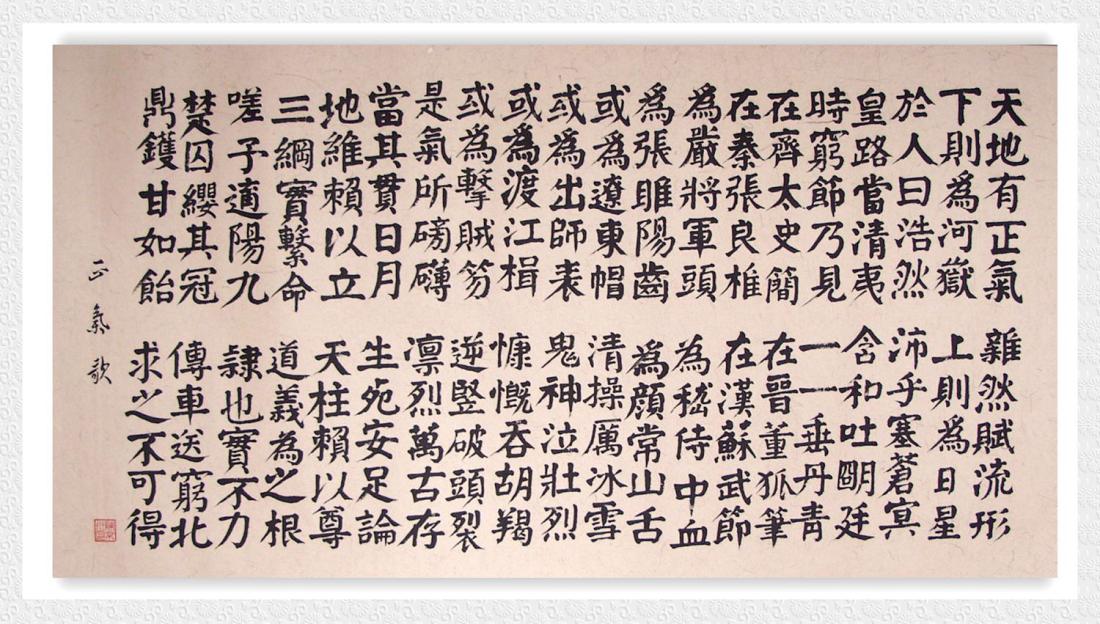 天地有正氣 雜然賦流形
下則為河嶽 上則為日星
於人曰浩然 沛乎塞蒼冥
皇路當清夷 含和吐朙廷
時窮節乃見 一一垂丹青
在齊太史簡 在晉董狐筆
在秦張良椎 在漢蘇武節
為嚴將軍頭 為嵇侍中血
為張睢陽齒 為顏常山舌
或為遼東帽 清操厲冰雪
或為出師表 鬼神泣壯烈
或為渡江楫 慷慨吞胡羯
或為擊賊笏 逆豎破頭裂
是氣所磅礡 凛烈萬古存
當其貫日月 生死安足論
地維賴以立 天柱賴以尊
三綱實繫命 道義為之根
嗟予遘陽九 隸也實不力
楚囚纓其冠 傳車送窮北
鼎鑊甘如飴 求之不可得
正氣歌